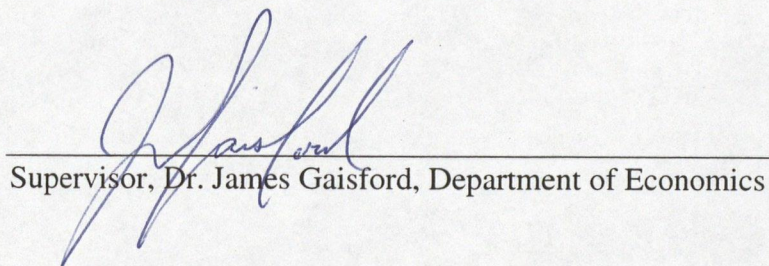 J. Gaisford
Supervisor, Dr. James Gaisford, Department of Economics